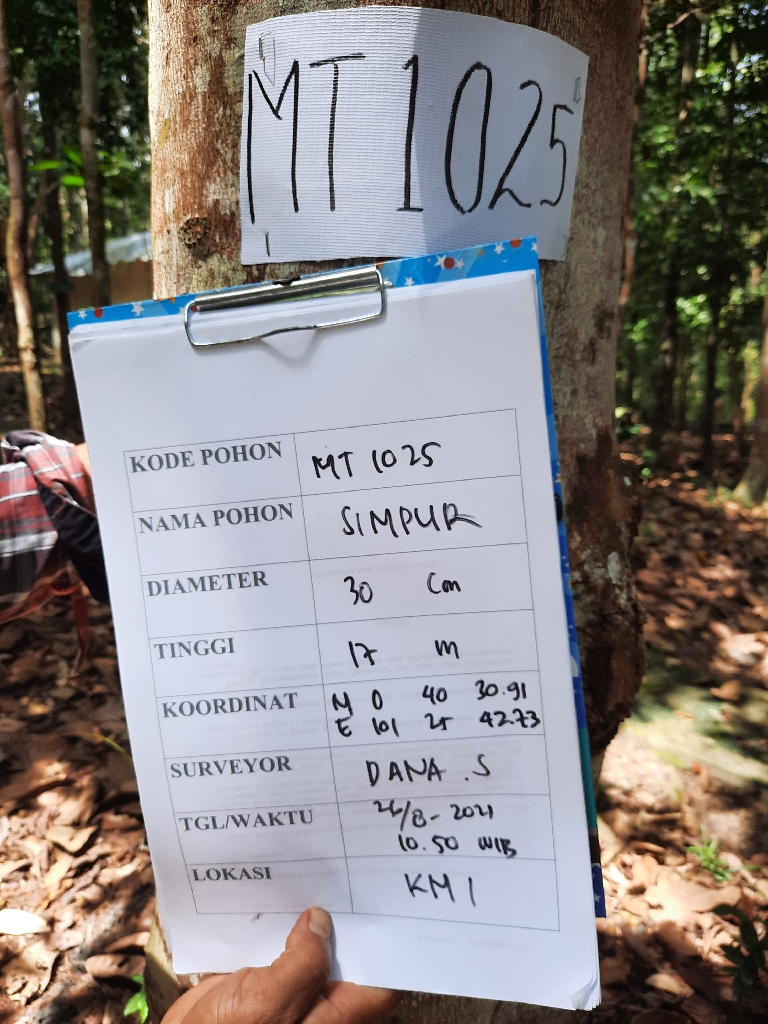 MT 1025
KODE POHON MT 1025
NAMA POHON SIMPUR
DIAMETER 30 Cm
TINGGI 17 m
KOORDINAT N 0 40 30.91
E 101 25 42.73
SURVEYOR DANA .S
TGL/WAKTU 26/8-2021
10.50 WIB
LOKASI KM 1